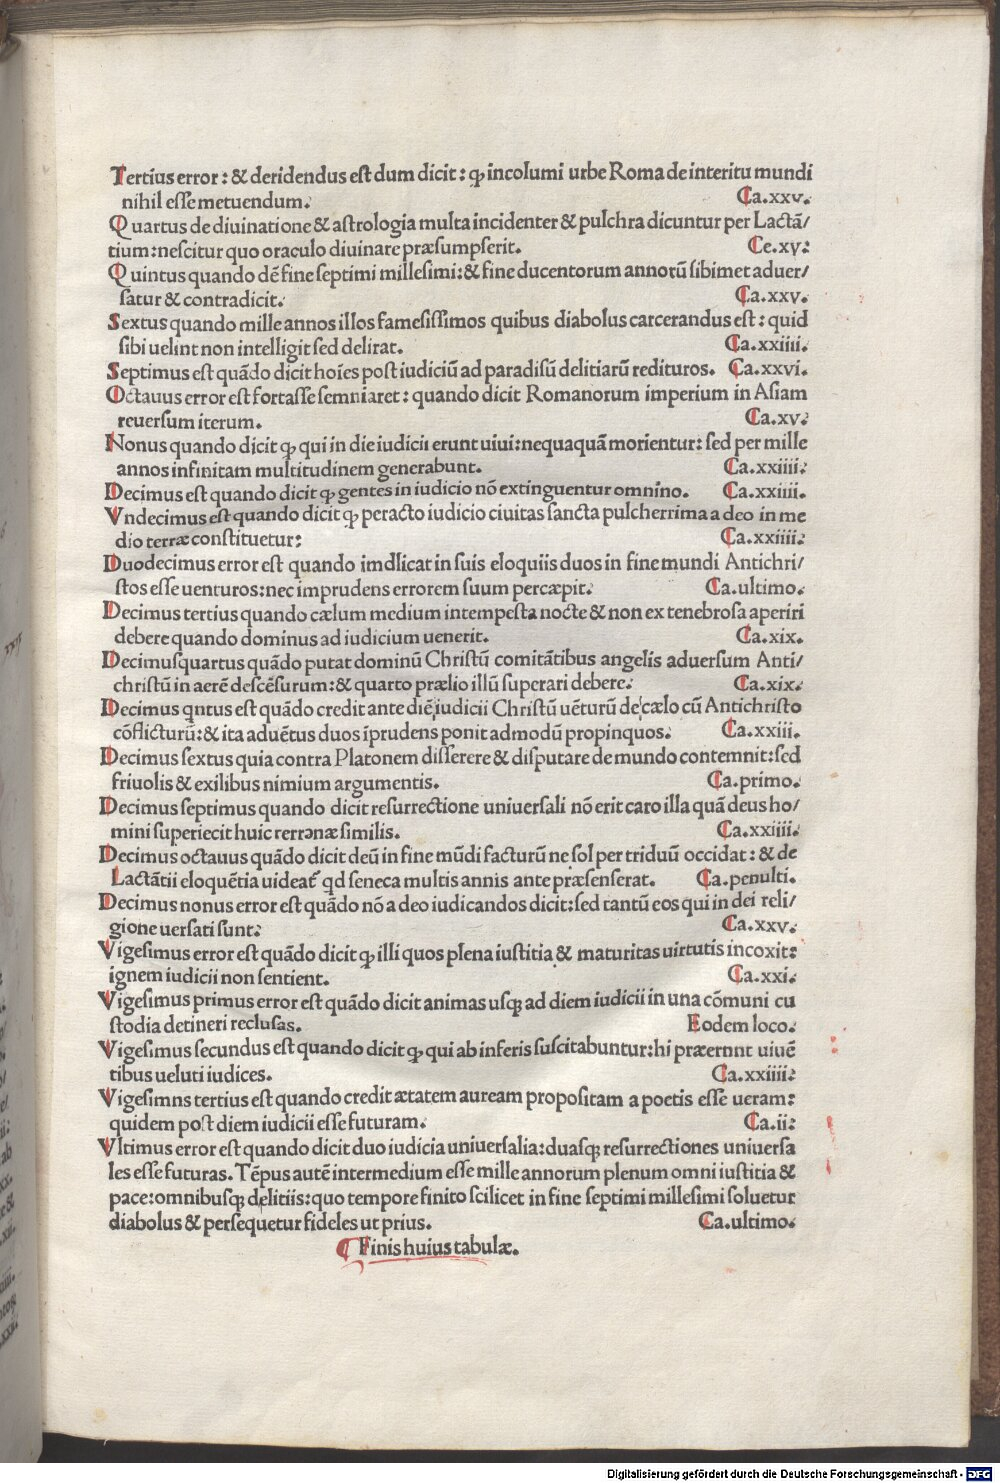 Tertius error: & deridendus est dum dicit: ꝙ incolumi urbe Roma de interitu mundi
nihil esse metuendum. Ca.xxv.
Quartus de diuinatione & astrologia multa incidenter & pulchra dicuntur per Lactã/
tium: nescitur quo oraculo diuinare præsumpserit. Ce.xv:
Quintus quando dẽ fine septimi millesimi: & fine ducentorum annorũ sibimet aduer/
satur & contradicit. Ca.xxv.
Sextus quando mille annos illos famesissimos quibus diabolus carcerandus est: quid
sibi uelint non intelligit sed delirat. Ca.xxiiii.
Septimus est quãdo dicit hoĩes post iudiciũ ad paradisũ delitiarũ redituros. Ca.xxvi.
Octauus error est fortasse semniaret: quando dicit Romanorum imperium in Asiam
reuersum iterum. Ca.xv:
Nonus quando dicit ꝙ qui in die iudicii erunt uiui: nequaquã morientur: sed per mille
annos infinitam multitudinem generabunt. Ca.xxiiii:
Decimus est quando dicit ꝙ gentes in iudicio nõ extinguentur omnino. Ca.xxiiii.
Vndecimus est quando dicit ꝙ peracto iudicio ciuitas sancta pulcherrima a deo in me
dio terræ constituetur: Ca.xxiiii:
Duodecimus error est quando imdlicat in suis eloquiis duos in fine mundi Antichri/
stos esse uenturos: nec imprudens errorem suum percæpit: Ca.ultimo.
Decimus tertius quando cælum medium intempesta nocte & non ex tenebrosa aperiri
debere quando dominus ad iudicium uenerit. Ca.xix.
Decimusquartus quãdo putat dominũ Christũ comitãtibus angelis aduersum Anti/
christũ in aerẽ descẽsurum: & quarto prælio illũ superari debere: Ca.xix:
Decimus qntus est quãdo credit ante diẽ iudicii Christũ uẽturũ de cælo cũ Antichristo
cõflicturũ: & ita aduẽtus duos ĩprudens ponit admodũ propinquos: Ca.xxiii.
Decimus sextus quia contra Platonem disserere & disputare de mundo contemnit: sed
friuolis & exilibus nimium argumentis. Ca.primo.
Decimus septimus quando dicit resurrectione uniuersali nõ erit caro illa quã deus ho/
mini superiecit huic rerrɘnæ similis. Ca.xxiiii:
Decimus octauus quãdo dicit deũ in fine mũdi facturũ ne sol per triduũ occidat: & de
Lactãtii eloquẽtia uideat̃ qd seneca multis annis ante præsenserat. Ca.penulti.
Decimus nonus error est quãdo nõ a deo iudicandos dicit: sed tantũ eos qui in dei reli/
gione uersati sunt: Ca.xxv.
Vigesimus error est quãdo dicit ꝙ illi quos plena iustitia & maturitas uirtutis incoxit:
ignem iudicii non sentient. Ca.xxi.
Vigesimus primus error est quãdo dicit animas usqꝫ ad diem iudicii in una cõmuni cu
stodia detineri reclusas. Eodem loco:
Vigesimus secundus est quando dicit ꝙ qui ab inferis suscitabuntur: hi præernnt uiuẽ
tibus ueluti iudices. Ca.xxiiii:
Vigesimns tertius est quando credit ætatem auream propositam a poetis esse ueram:
quidem post diem iudicii esse futuram. Ca.ii:
Vltimus error est quando dicit duo iudicia uniuersalia: duasqꝫ resurrectiones uniuersa
les esse futuras. Tẽpus autẽ intermedium esse mille annorum plenum omni iustitia &
pace: omnibusqꝫ delitiis: quo tempore finito scilicet in fine septimi millesimi soluetur
diabolus & persequetur fideles ut prius. Ca.ultimo.
¶ Finis huius tabulæ.
Digitalisierung gefördert durch die Deutsche Forschungsgemeinschaft - DFG